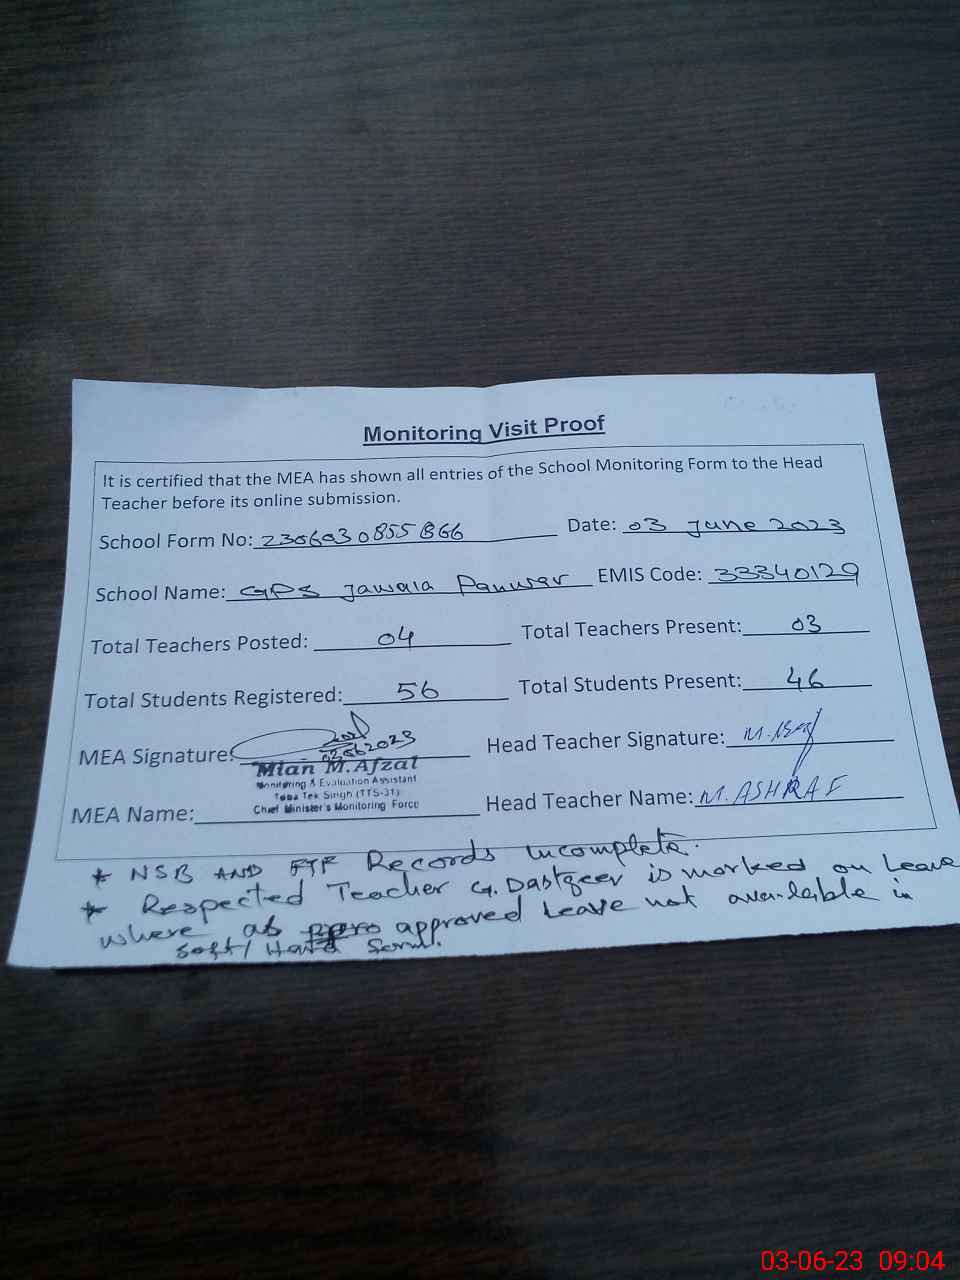 Monitoring Visit Proof
It is certified that the MEA has shown all entries of the School Monitoring Form to the Head
Teacher before its online submission.
School Form No: 2306030855866 Date: 03 June 2023
School Name: GPS Jawala Panwar EMIS Code: 33340129
Total Teachers Posted: 04 Total Teachers Present: 03
Total Students Registered: 56 Total Students Present: 46
MEA Signature: Head Teacher Signature:
Mian M.Afzal
Monitoring & Evaluation Assistant
Toba Tek Singh (TTS-31)
Chief Minister's Monitoring Force
MEA Name: Head Teacher Name: M. ASHRAF
* NSB AND FTF Records Incomplete.
* Respected Teacher G. Dastgeer is marked on Leave
where as approved Leave not available in
Soft/Hard
03-06-23 09:04